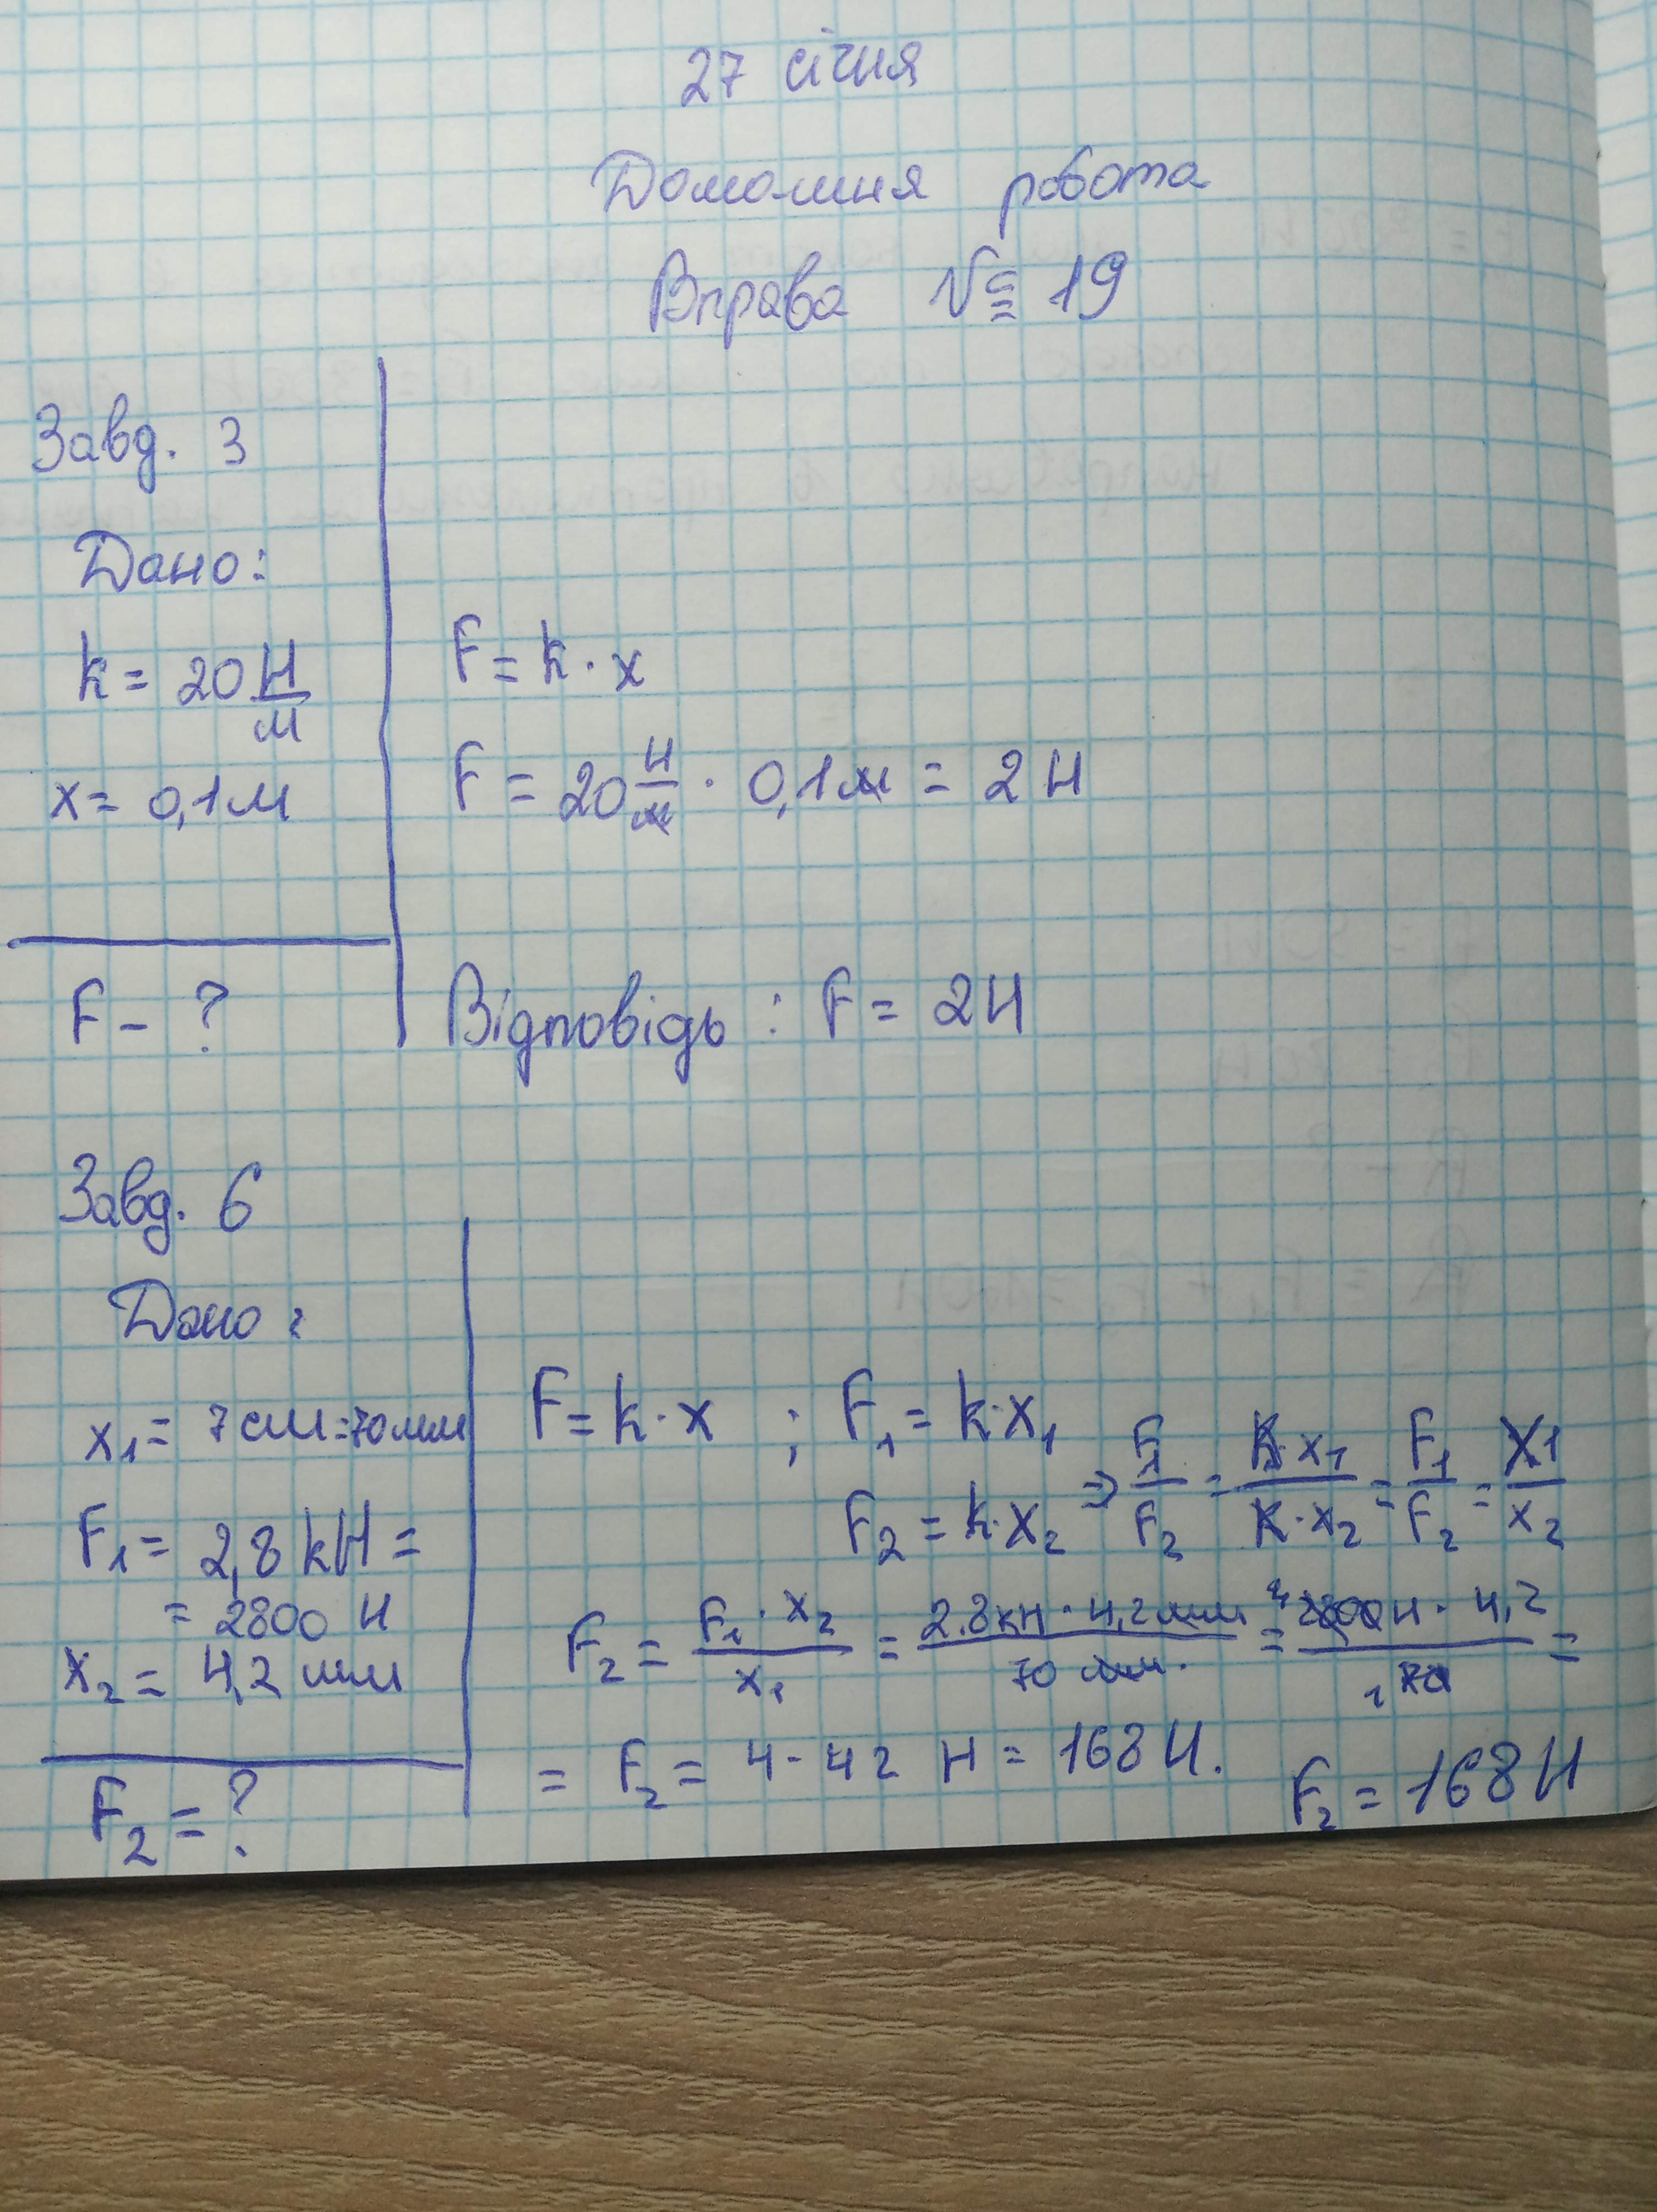 27 січня
Домашня робота
Вправа № 19
Завд. 3
Дано:
k = 20 Н/м
x = 0,1 м
F - ?
F = k · x
F = 20 Н/м · 0,1 м = 2 Н
Відповідь : F = 2Н
Завд. 6
Дано :
x₁ = 7 см = 70 мм
F₁ = 2,8 kН =
= 2800 Н
x₂ = 4,2 мм
F₂ = ?
F = k · x ; F₁ = k · x₁
F₂ = k · x₂ ⇒ F₁/F₂ = k · x₁/k · x₂ = F₁/F₂ = x₁/x₂
F₂ = F₁ · x₂/x₁ = 2.8 кН · 4,2 мм/70 мм. = 2800 Н · 4,2/70 =
= F₂ = 4 · 42 Н = 168 Н.
F₂ = 168 Н